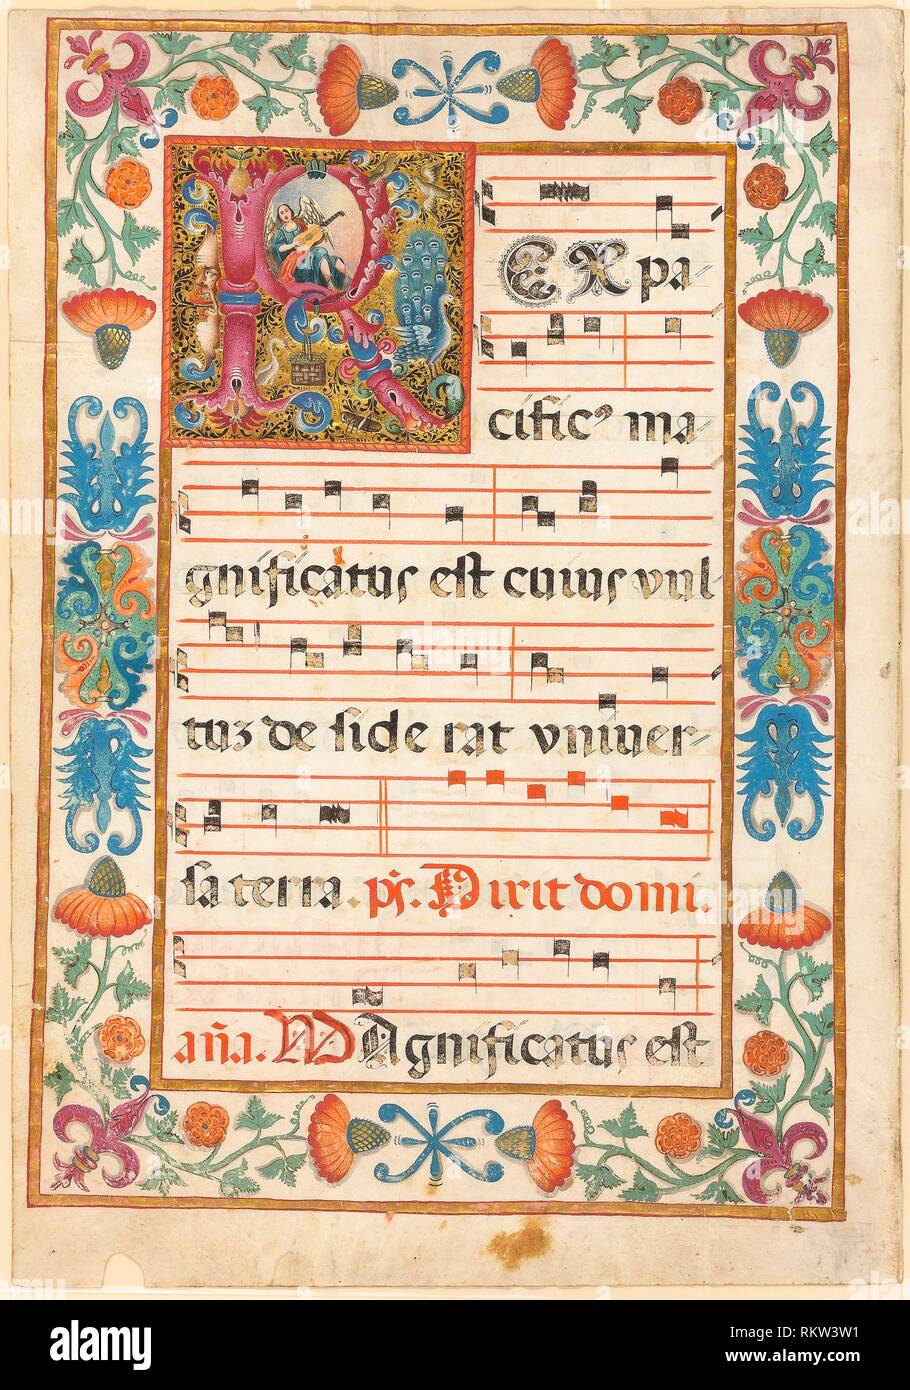 REX pa-
cificꝰ ma
gnificatus est cuius vul
tuz de side rat vniuer-
sa terra. ps. Dixit domi.
aña. MAgnificatus est
a alamy stock photo
alamy
Image ID: RKW3W1
www.alamy.com